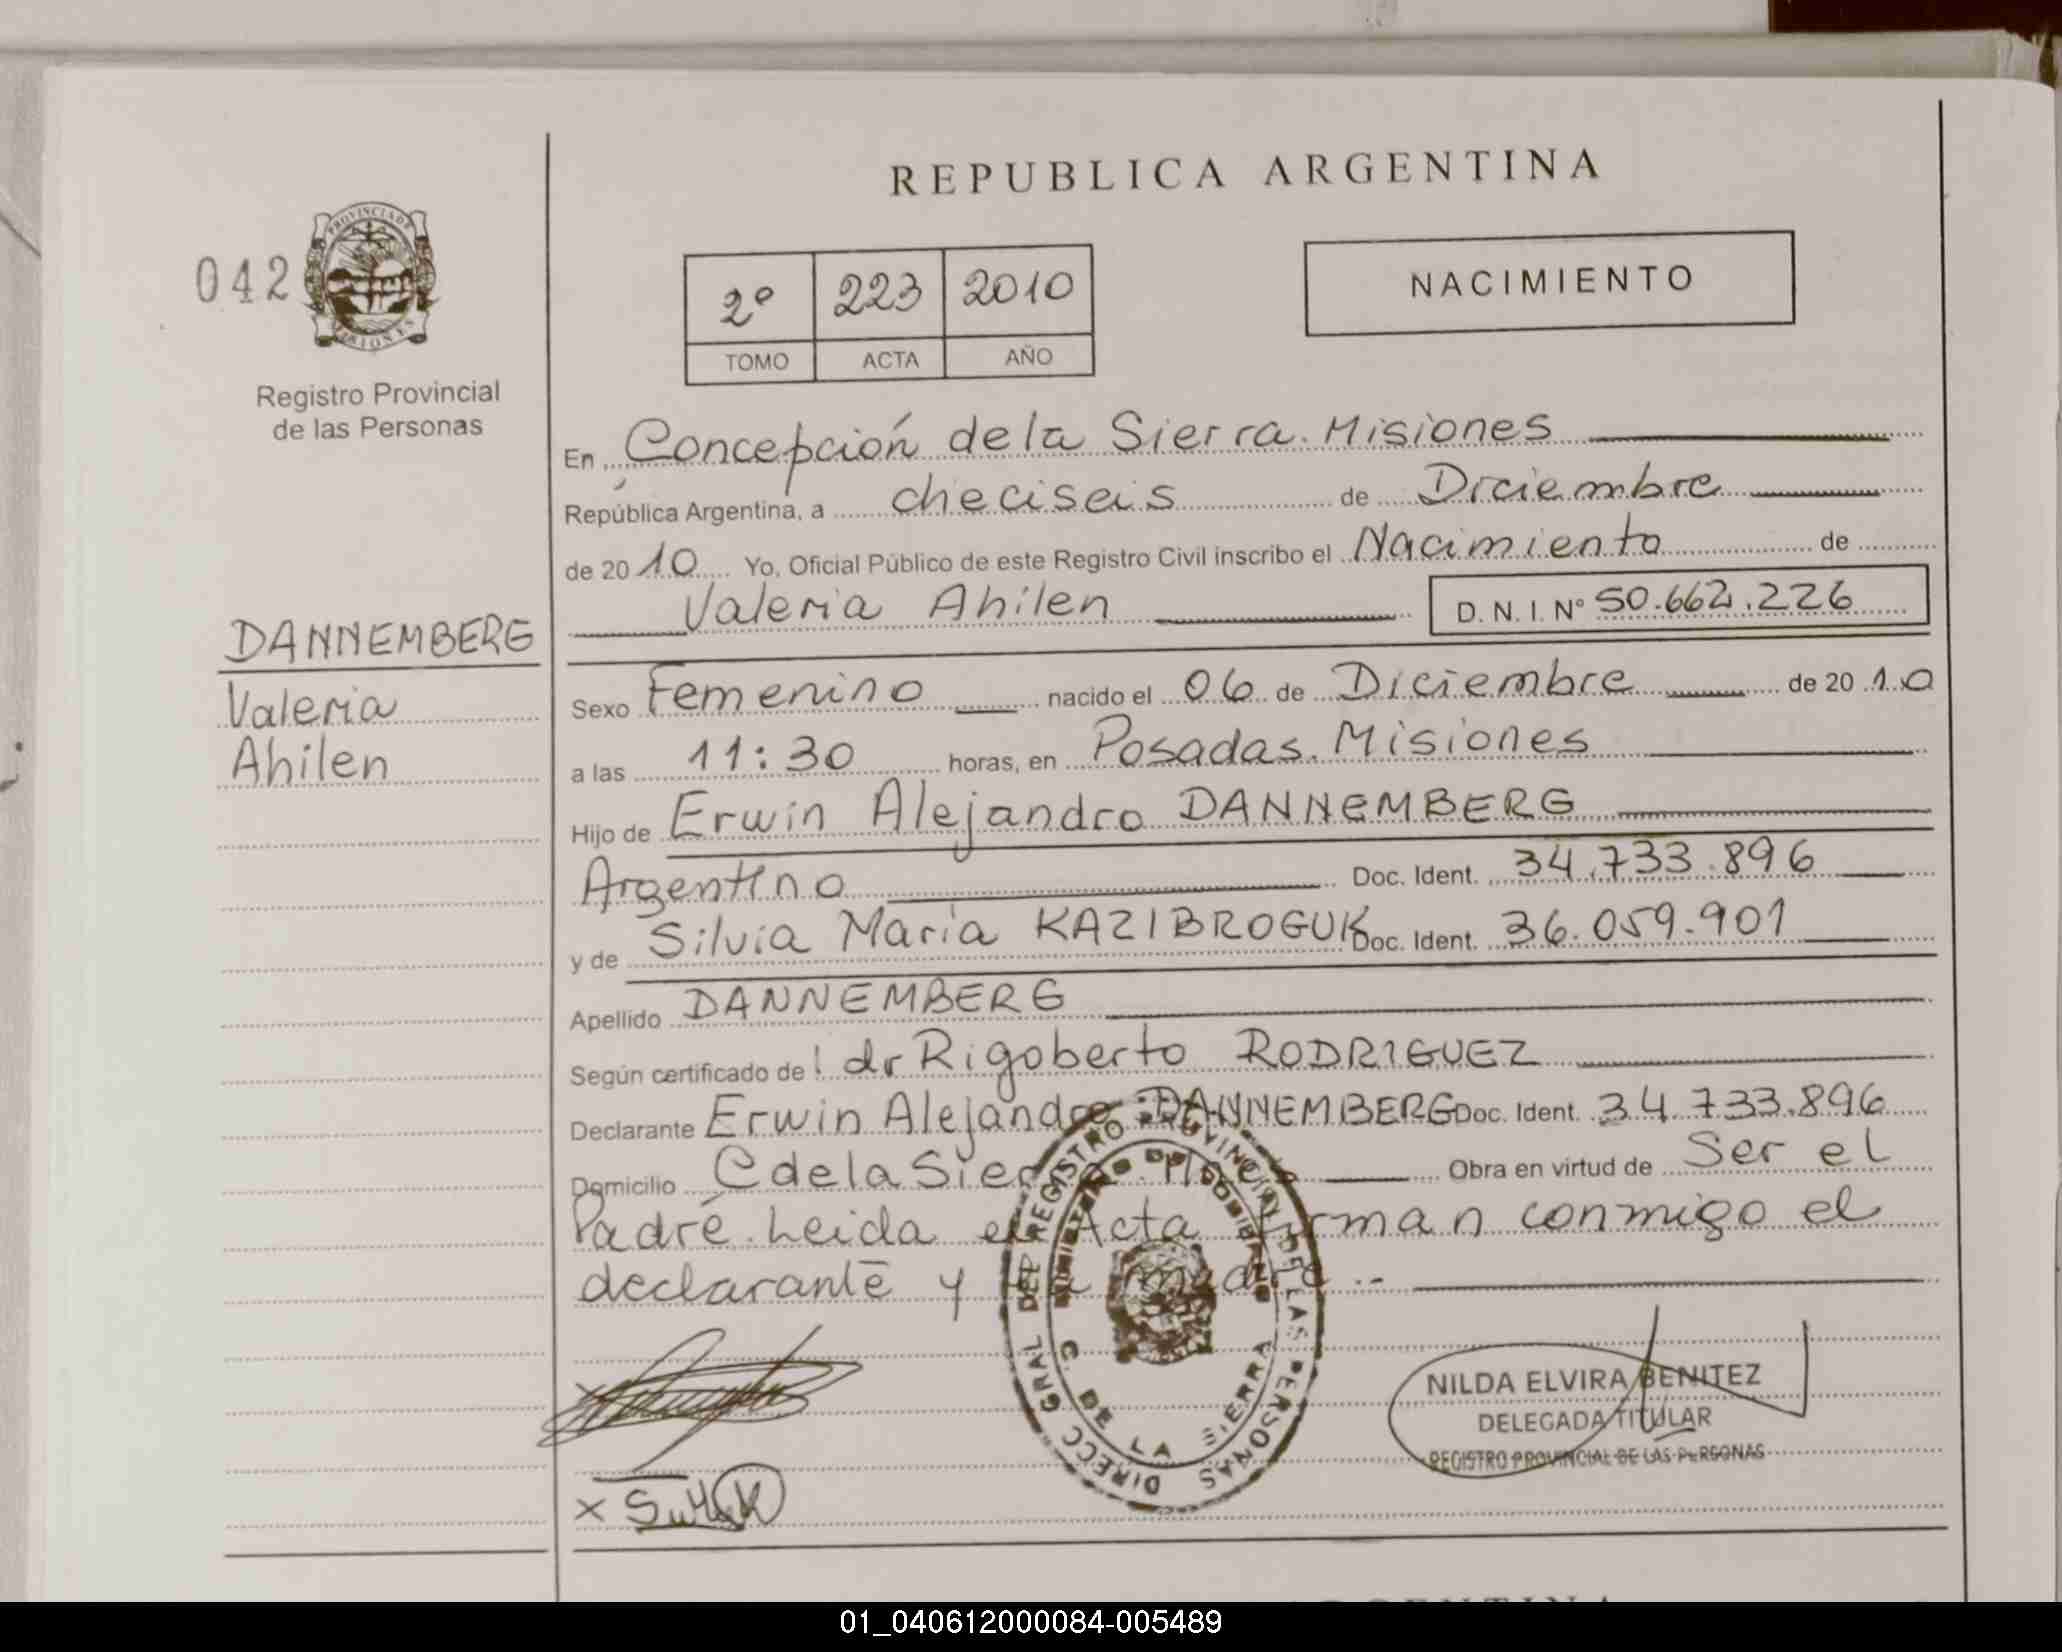 REPUBLICA ARGENTINA
042
PROVINCIA DE
MISIONES
Registro Provincial
de las Personas
2º 223 2010
TOMO ACTA AÑO
NACIMIENTO
En Concepción de la Sierra. Misiones
República Argentina, a dieciseis de Diciembre
de 2010 Yo, Oficial Público de este Registro Civil inscribo el Nacimiento de
Valeria Ahilen D. N. I. Nº 50.662.226
DANNEMBERG
Valeria
Ahilen
Sexo Femenino nacido el 06 de Diciembre de 2010
a las 11:30 horas, en Posadas. Misiones
Hijo de Erwin Alejandro DANNEMBERG
Argentino Doc. Ident. 34.733.896
y de Silvia Maria KAZIBROGUK Doc. Ident. 36.059.901
Apellido DANNEMBERG
Según certificado de dr Rigoberto RODRIGUEZ
Declarante Erwin Alejandro DANNEMBERG Doc. Ident. 34.733.896
Domicilio C de la Sierra. Mnes Obra en virtud de Ser el
Padre. Leida el Acta firman conmigo el
declarante y la madre.-
DIRECC GRAL DEL REGISTRO PROVINCIAL DE LAS PERSONAS
MINISTERIO DE GOBIERNO
C. DE LA SIERRA
NILDA ELVIRA BENITEZ
DELEGADA TITULAR
REGISTRO PROVINCIAL DE LAS PERSONAS
ARGENTINA
01_040612000084-005489